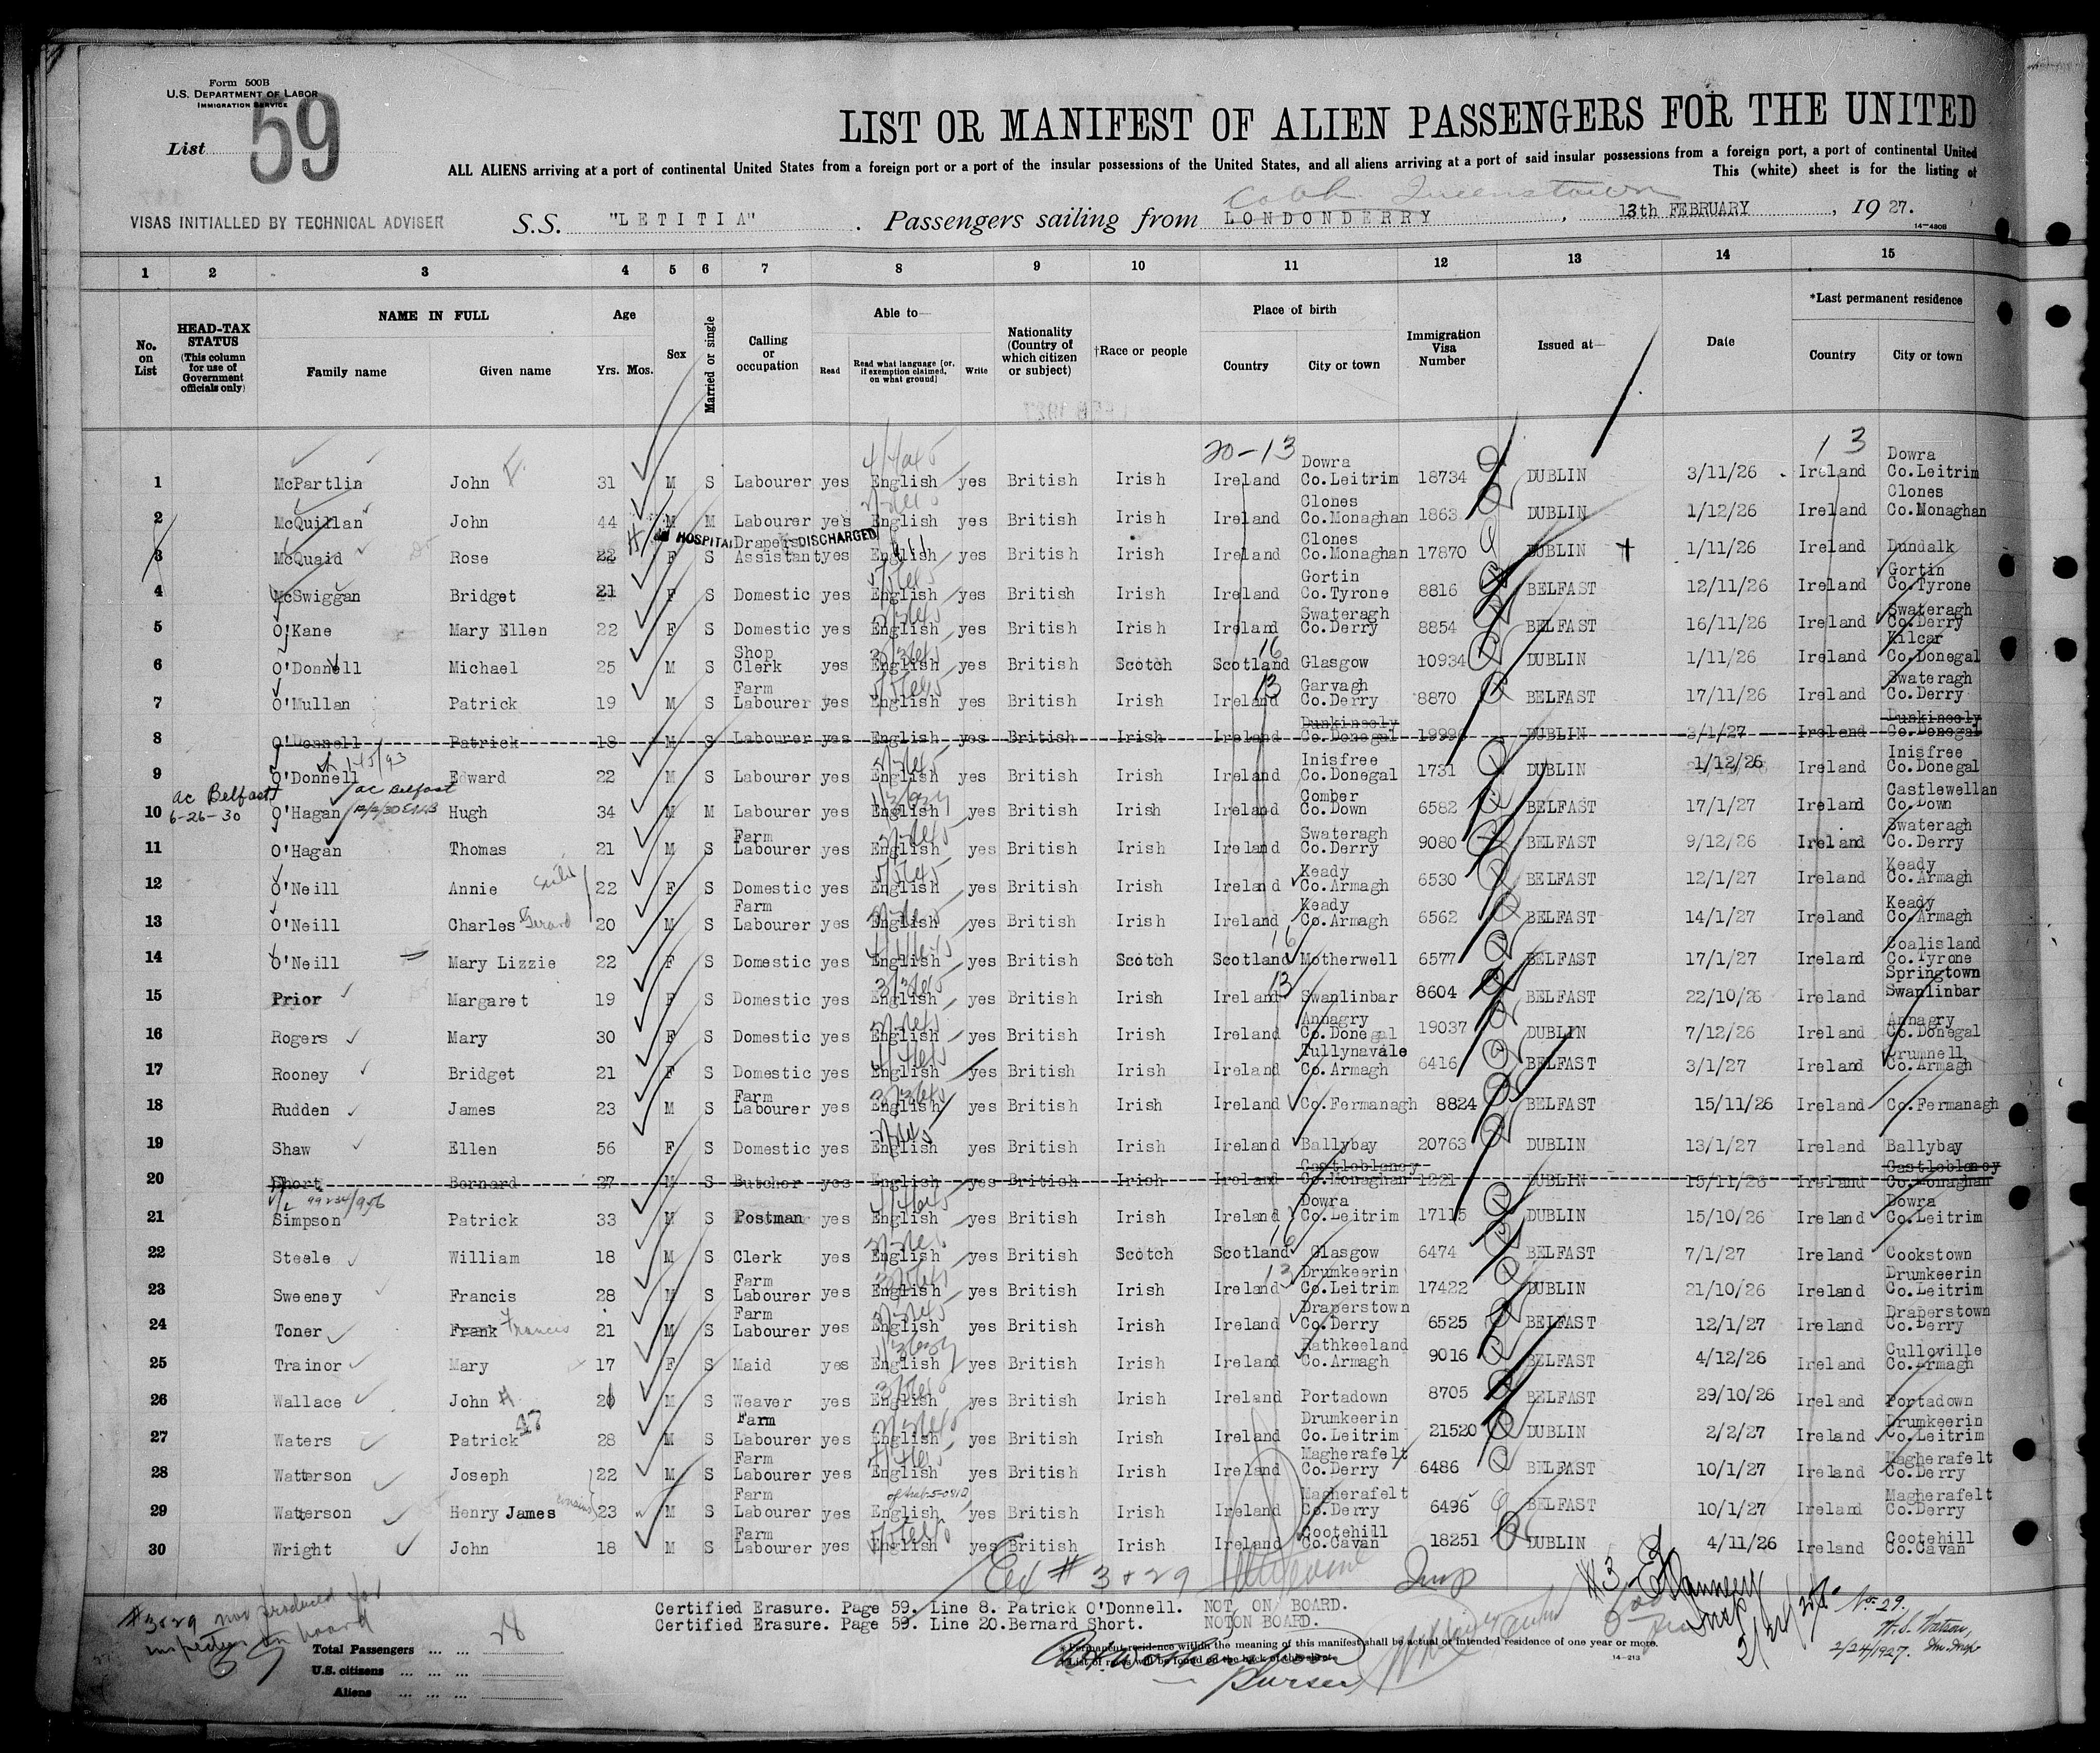 Form 500B
U.S. DEPARTMENT OF LABOR
IMMIGRATION SERVICE
List 59
LIST OR MANIFEST OF ALIEN PASSENGERS FOR THE UNITED
ALL ALIENS arriving at a port of continental United States from a foreign port or a port of the insular possessions of the United States, and all aliens arriving at a port of said insular possessions from a foreign port, a port of continental United
This (white) sheet is for the listing of
Cobh Queenstown
VISAS INITIALLED BY TECHNICAL ADVISER
S.S. "LETITIA". Passengers sailing from LONDONDERRY, 13th FEBRUARY, 1927.
14-4308
1 2 3 4 5 6 7 8 9 10 11 12 13 14 15
No. on List
HEAD-TAX STATUS (This column for use of Government officials only)
NAME IN FULL
Family name Given name
Age
Yrs. Mos.
Sex
Married or single
Calling or occupation
Able to—
Read Read what language [or, if exemption claimed, on what ground] Write
Nationality (Country of which citizen or subject)
†Race or people
Place of birth
Country City or town
Immigration Visa Number
Issued at—
Date
*Last permanent residence
Country City or town
20-13 13
1 McPartlin John 31 M S Labourer yes English yes British Irish Ireland Dowra Co.Leitrim 18734 DUBLIN 3/11/26 Ireland Dowra Co.Leitrim
2 McQuillan John 44 M M Labourer yes English yes British Irish Ireland Clones Co.Monaghan 1863 DUBLIN 1/12/26 Ireland Clones Co.Monaghan
HOSPITAL DISCHARGED
3 McQuaid Rose 22 F S Drapers Assistant yes English yes British Irish Ireland Clones Co.Monaghan 17870 DUBLIN 1/11/26 Ireland Dundalk
4 McSwiggan Bridget 21 F S Domestic yes English yes British Irish Ireland Gortin Co.Tyrone 8816 BELFAST 12/11/26 Ireland Gortin Co.Tyrone
5 O'Kane Mary Ellen 22 F S Domestic yes English yes British Irish Ireland Swateragh Co.Derry 8854 BELFAST 16/11/26 Ireland Swateragh Co.Derry
6 O'Donnell Michael 25 M S Shop Clerk yes English yes British Scotch Scotland Glasgow 10934 DUBLIN 1/11/26 Ireland Kilcar Co.Donegal
7 O'Mullan Patrick 19 M S Farm Labourer yes English yes British Irish Ireland Garvagh Co.Derry 8870 BELFAST 17/11/26 Ireland Swateragh Co.Derry
8 O'Donnell Patrick 18 M S Labourer yes English yes British Irish Ireland Dunkineely Co.Donegal 19996 DUBLIN 3/1/27 Ireland Dunkineely Co.Donegal
9 O'Donnell Edward 22 M S Labourer yes English yes British Irish Ireland Inisfree Co.Donegal 1731 DUBLIN 1/12/26 Ireland Inisfree Co.Donegal
ac Belfast 6-26-30
ac Belfast
10 O'Hagan Hugh 34 M M Labourer yes English yes British Irish Ireland Comber Co.Down 6582 BELFAST 17/1/27 Ireland Castlewellan Co.Down
11 O'Hagan Thomas 21 M S Farm Labourer yes English yes British Irish Ireland Swateragh Co.Derry 9080 BELFAST 9/12/26 Ireland Swateragh Co.Derry
12 O'Neill Annie 22 F S Domestic yes English yes British Irish Ireland Keady Co.Armagh 6530 BELFAST 12/1/27 Ireland Keady Co.Armagh
13 O'Neill Charles Gerard 20 M S Farm Labourer yes English yes British Irish Ireland Keady Co.Armagh 6562 BELFAST 14/1/27 Ireland Keady Co.Armagh
14 O'Neill Mary Lizzie 22 F S Domestic yes English yes British Scotch Scotland Motherwell 6577 BELFAST 17/1/27 Ireland Coalisland Co.Tyrone
15 Prior Margaret 19 F S Domestic yes English yes British Irish Ireland Swanlinbar 8604 BELFAST 22/10/26 Ireland Springtown Swanlinbar
16 Rogers Mary 30 F S Domestic yes English yes British Irish Ireland Annagry Co.Donegal 19037 DUBLIN 7/12/26 Ireland Annagry Co.Donegal
17 Rooney Bridget 21 F S Domestic yes English yes British Irish Ireland Tullynavale Co.Armagh 6416 BELFAST 3/1/27 Ireland Drumnell Co.Armagh
18 Rudden James 23 M S Farm Labourer yes English yes British Irish Ireland Co.Fermanagh 8824 BELFAST 15/11/26 Ireland Co.Fermanagh
19 Shaw Ellen 56 F S Domestic yes English yes British Irish Ireland Ballybay 20763 DUBLIN 13/1/27 Ireland Ballybay
20 Short Bernard 27 M S Butcher yes English yes British Irish Ireland Castleblaney Co.Monaghan 1221 DUBLIN 15/11/26 Ireland Castleblaney Co.Monaghan
21 Simpson Patrick 33 M S Postman yes English yes British Irish Ireland Dowra Co.Leitrim 17115 DUBLIN 15/10/26 Ireland Dowra Co.Leitrim
22 Steele William 18 M S Clerk yes English yes British Scotch Scotland Glasgow 6474 BELFAST 7/1/27 Ireland Cookstown
23 Sweeney Francis 28 M S Farm Labourer yes English yes British Irish Ireland Drumkeerin Co.Leitrim 17422 DUBLIN 21/10/26 Ireland Drumkeerin Co.Leitrim
24 Toner Frank Francis 21 M S Farm Labourer yes English yes British Irish Ireland Draperstown Co.Derry 6525 BELFAST 12/1/27 Ireland Draperstown Co.Derry
25 Trainor Mary 17 F S Maid yes English yes British Irish Ireland Rathkeeland Co.Armagh 9016 BELFAST 4/12/26 Ireland Culloville Co.Armagh
26 Wallace John H 26 M S Weaver yes English yes British Irish Ireland Portadown 8705 BELFAST 29/10/26 Ireland Portadown
27 Waters Patrick 28 M S Farm Labourer yes English yes British Irish Ireland Drumkeerin Co.Leitrim 21520 DUBLIN 2/2/27 Ireland Drumkeerin Co.Leitrim
28 Watterson Joseph 22 M S Farm Labourer yes English yes British Irish Ireland Magherafelt Co.Derry 6486 BELFAST 10/1/27 Ireland Magherafelt Co.Derry
29 Watterson Henry James cousins 23 M S Farm Labourer yes English yes British Irish Ireland Magherafelt Co.Derry 6496 BELFAST 10/1/27 Ireland Magherafelt Co.Derry
30 Wright John 18 M S Farm Labourer yes English yes British Irish Ireland Cootehill Co.Cavan 18251 DUBLIN 4/11/26 Ireland Cootehill Co.Cavan
Ex # 3 & 29
#3 & 29 not produced for
inspection on board
Certified Erasure. Page 59. Line 8. Patrick O'Donnell. NOT ON BOARD.
Certified Erasure. Page 59. Line 20.Bernard Short. NOTON BOARD.
Total Passengers 28
U.S. citizens
Aliens
* Permanent residence within the meaning of this manifest shall be actual or intended residence of one year or more.
† List of races will be found on the back of this sheet.
14-213
Purser
No. 29.
W. S. Watson,
2/24/1927. Im Insp